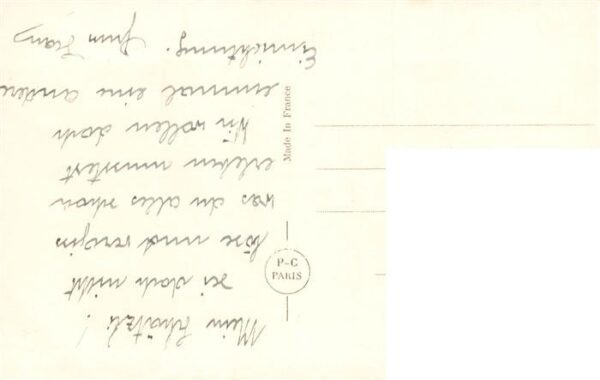 Mein Schätzli!
sei doch nicht
böse und vergis
was du alles schon
erleben musstest
Wir wollen doch
einmal eine andere
Einrichtung. Dein Franz
Made In France
P-C
PARIS